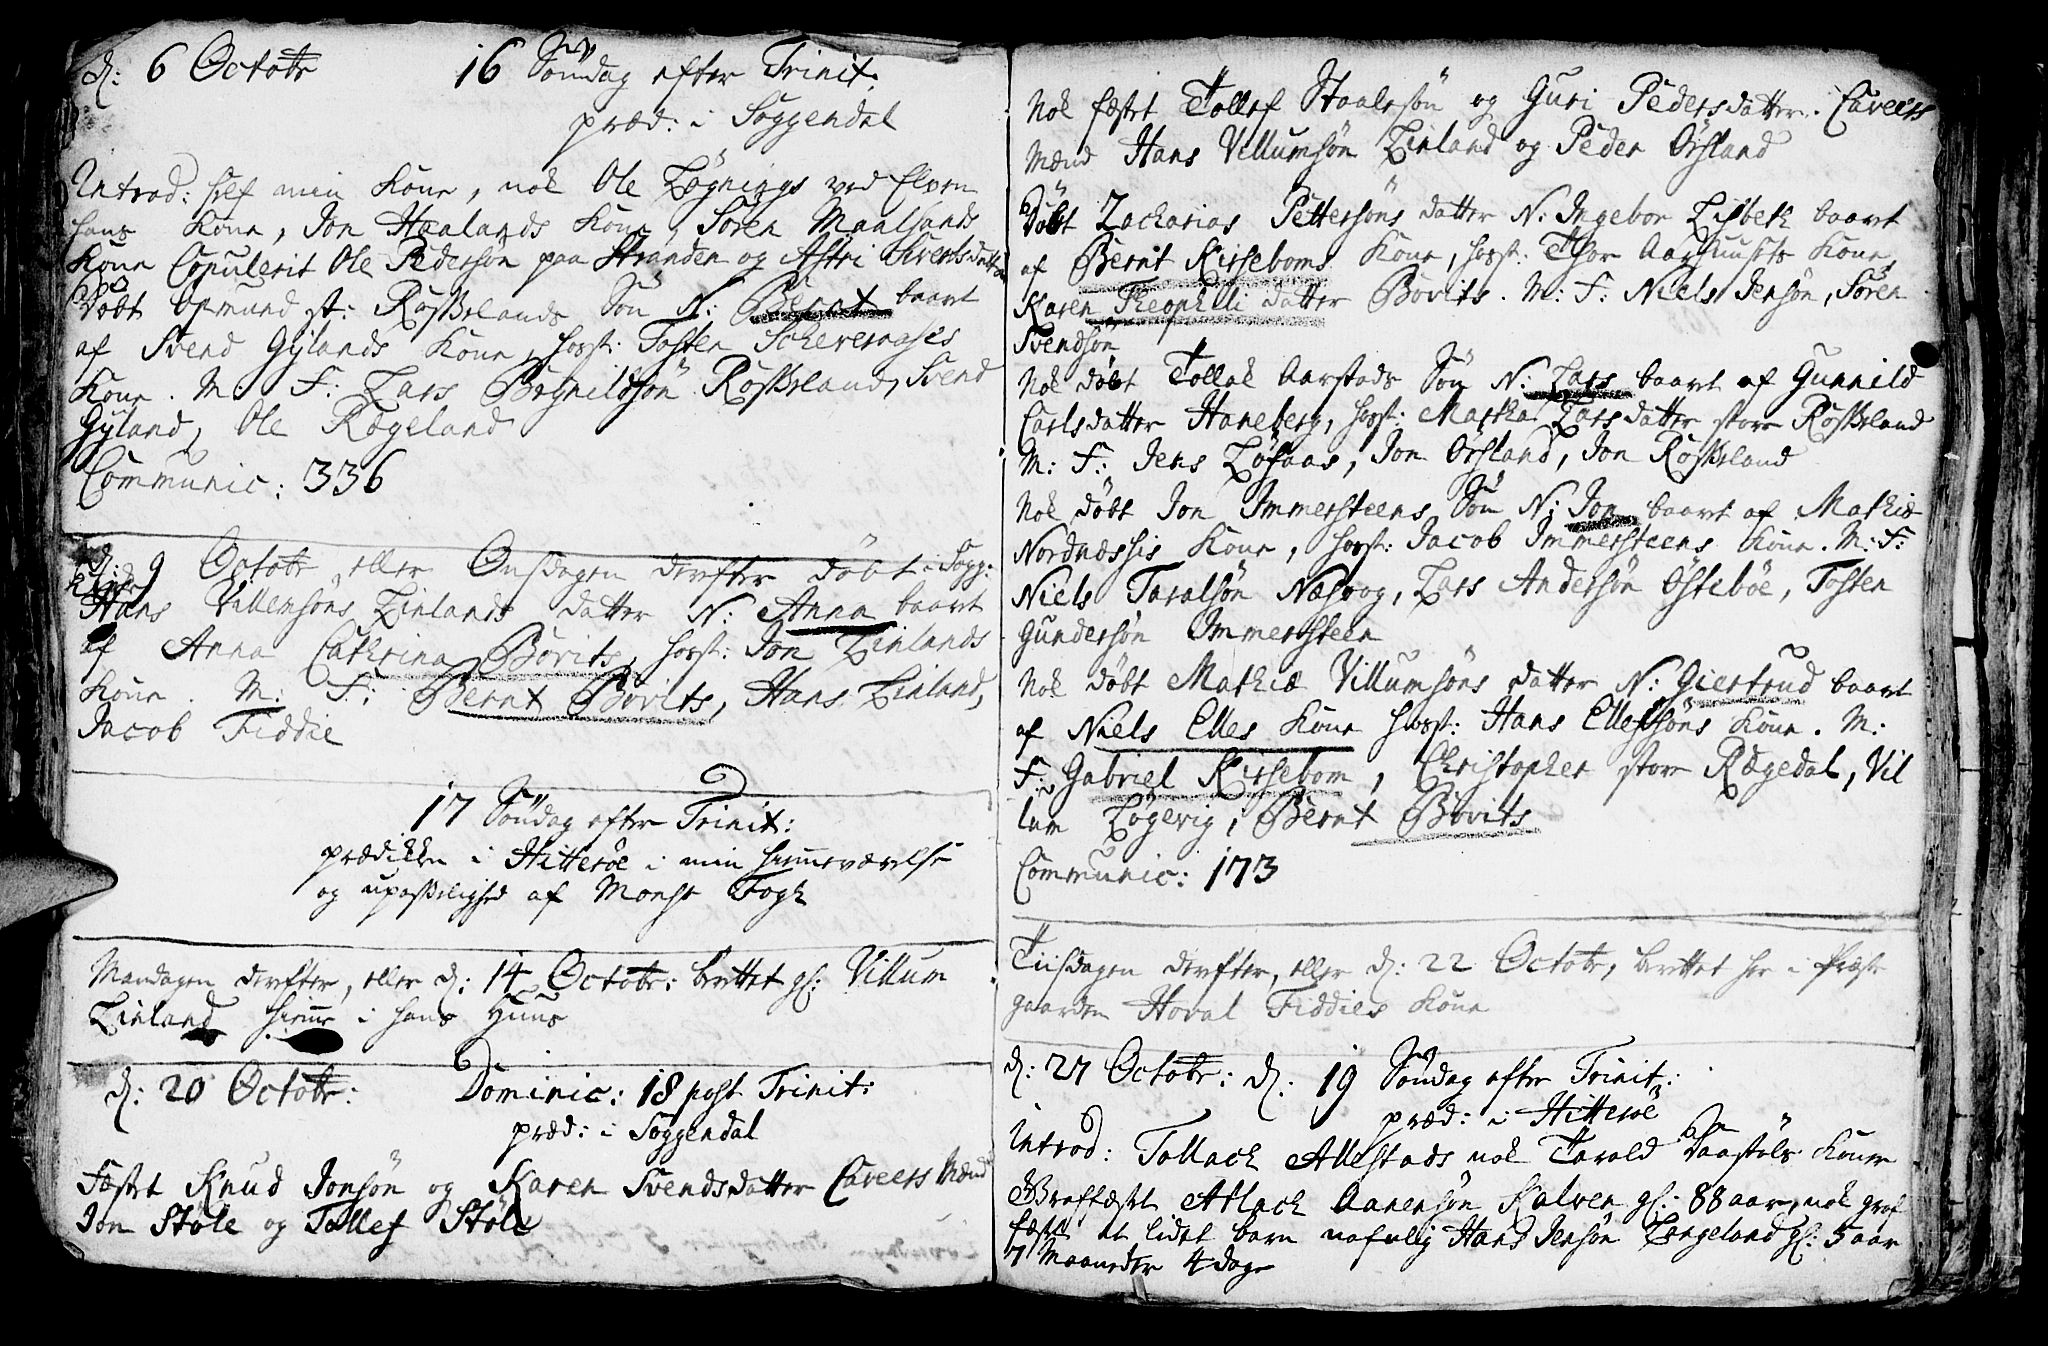 d: 6 Octobr 16 Søndag efter Trinit:
præd: i Soggendal
Introd: self min Kone, nok Ole Løgnings ved Elven
hans Kone, Jon Haalands Kone, Søren Maalsands
Kone Copulerit Ole Pedersøn paa Stranden og Astri Sivertsdatter
Døbt Osmund st: Røsslands Søn N: Bernt baart
af Svend Gylands Kone, hosst: Tosten Scheveraases
Kone. M: F: Lars Bognildsøn Røssland, Svend
Gyland, Ole Rægeland
Communic: 336
d: 9 Octobr eller Onsdagen derefter døbt i Sogg:
Hans Villumsøns Linlands datter N: Anna baart
af Anna Cathrina Bovits, hosst: Jon Linlands
Kone. M: F: Bernt Bovits, Hans Linland,
Jacob Fiddie
17 Søndag efter Trinit:
prædikken i Hitterøe i min fraværelse
og upasselighed af Monsr Fogh
Mandagen derefter, eller d: 14 Octobr: berettet gl: Villum
Linland hiemme i hans Huus
d: 20 Octobr: Dominic: 18 post Trinit:
præd: i Soggendal
Fæstet Knud Jonsøn og Karen Svendsdatter Caveers Mænd
Jon Støle og Tollef Støle
Nok fæstet Tollef Staalesøn og Guri Pedersdatter. Caveers
Mænd Hans Villumsøn Linland og Peder Ørsland
Døbt Zacharias Pettersøns datter N: Ingebor Lisbeth baart
af Bernt Kirseboms Kone, hosst: Thor Aarhuusets Kone,
Karen Theophili datter Bovits. M: F: Niels Jensøn, Søren
Svendsøn
Nok døbt Tollak Aarstads Søn N: Lars baart af Gunnild
Carlsdatter Haneberg, hosst: Martha Larsdatter store Røssland
M: F: Jens Løfaas, Jon Ørsland, Jon Røssland
Nok døbt Jon Immersteens Søn N: Jon baart af Mathie
Nordnæssis Kone, hosst: Jacob Immersteens Kone. M: F:
Niels Taralsøn Næsvog, Lars Andersøn Østebøe, Tosten
Gundersøn Immersteen
Nok døbt Mathiæ Villumsøns datter N: Giertrud baart
af Niels Elles Kone hosst: Hans Ellefsøns Kone. M:
F: Gabriel Kirsebom, Christopher store Rægedal, Vil
lum Løgevig, Bernt Bovits
Communic: 173
Tiisdagen derefter, eller d: 22 Octobr, berettet her i Præste
gaarden Hoval Fiddies Kone
d: 27 Octobr: d: 19 Søndag efter Trinit:
præd: i Hitterøe
Introd: Tollach Allestads nok Tarald Vaastøls Kone
Graffæstet Atlach Aanensøn Kalven gl: 88 aar, nok graf
fæstet et lidet barn nafnlig Hans Jensøn Longeland gl: 5 aar
7 Maaneder 4 dage